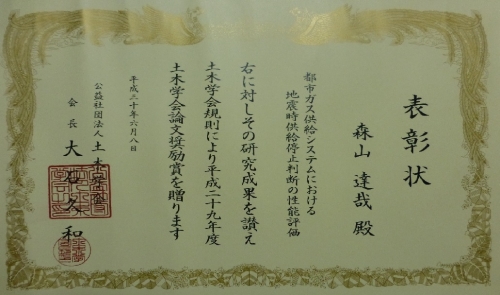 表彰状
森山 達哉 殿
都市ガス供給システムにおける
地震時供給停止判断の性能評価
右に対しその研究成果を讃え
土木学会規則により平成二十九年度
土木学会論文奨励賞を贈ります
平成三十年六月八日
公益社団法人 土木学会
会長 大石久和